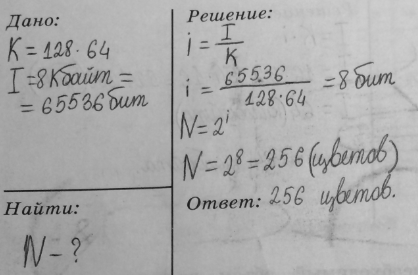 Дано:
K = 128·64
I = 8 Кбайт =
= 65536 бит
Найти:
N - ?
Решение:
i = I/K
i = 65536/128·64 = 8 бит
N = 2^i
N = 2^8 = 256 (цветов)
Ответ: 256 цветов.